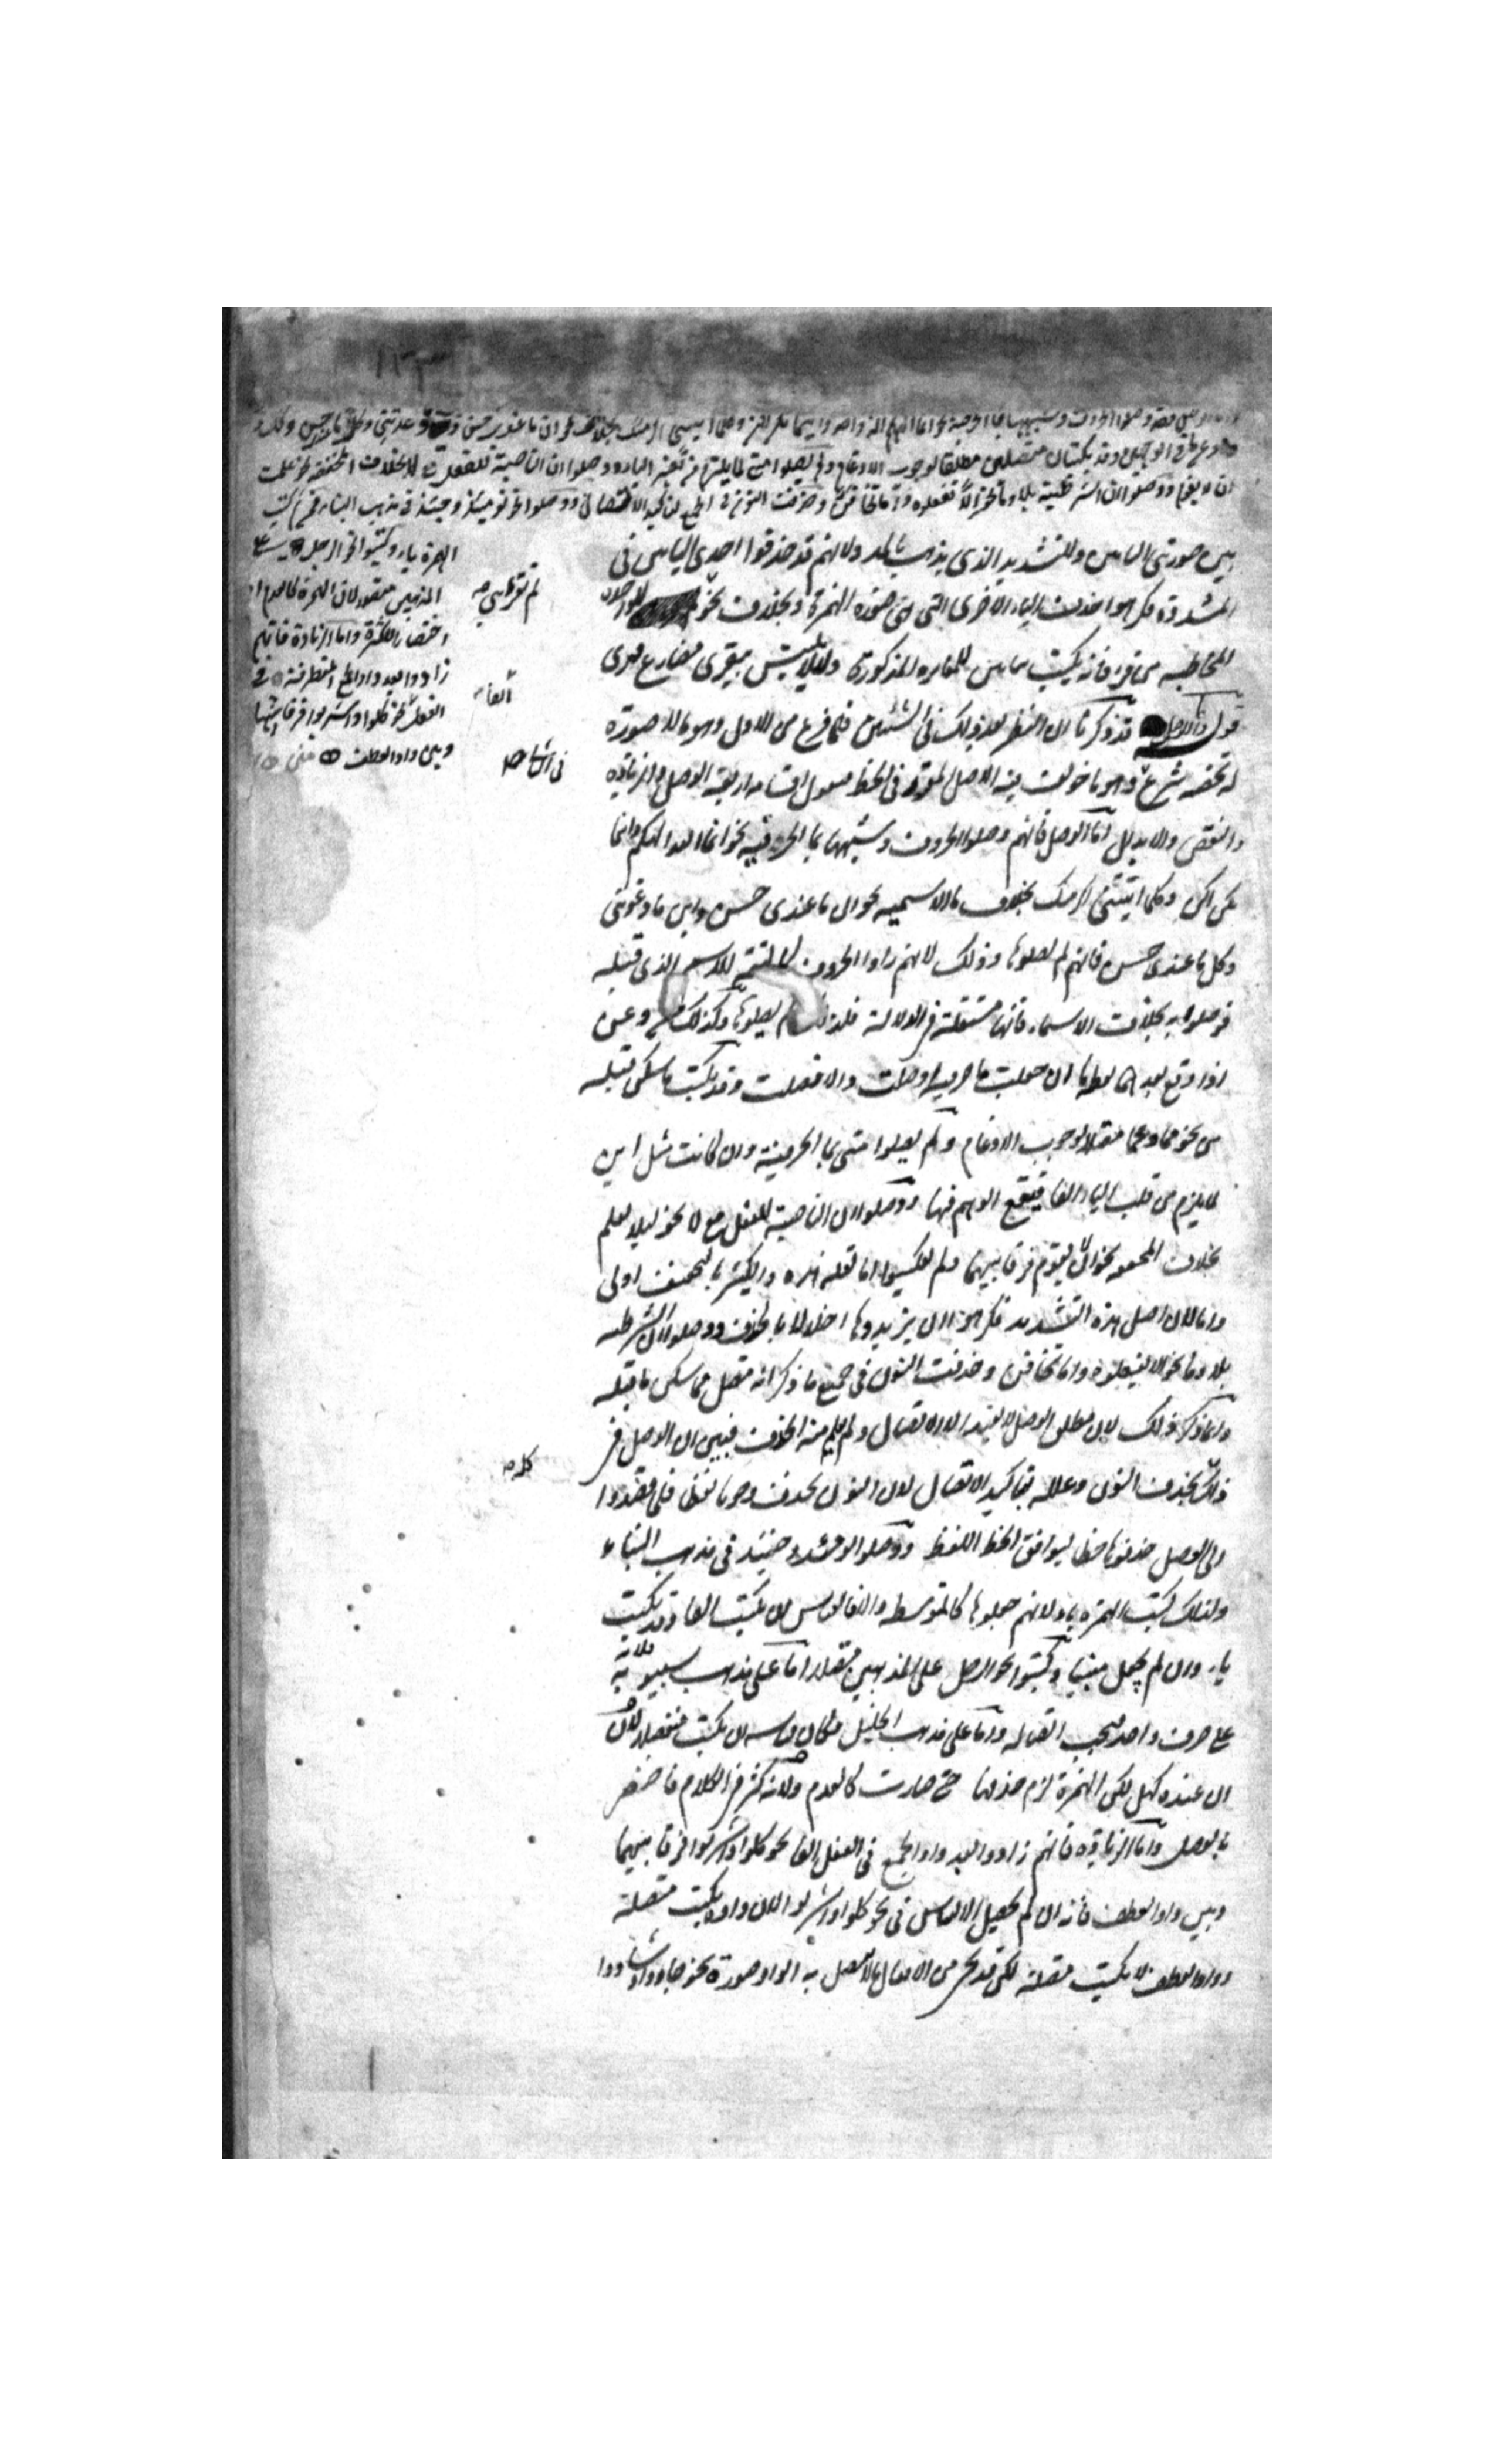 اما الوصل فقد وصلوا الحروف وشبهها بما الحرفية نحو انما الهكم اله واحد واينما تكن اكن وكلما اتيتني اكرمتك بخلاف نحو ان ما عندي حسن واين ما وعدتني وكل ما عندي حسن وكذلك
وعن في الوجهين وقد يكتبان متصلين مطلقا لوجوب الادغام ولم يصلوا متى لما يلزم من تغيير الياء ووصلوا ان الناصبة للفعل مع لا بخلاف المخففة نحو علمت
ان لا يقوم ووصلوا ان الشرطية بلا وما نحو الا تفعلوه واما تخافن وحذفت النون في الجميع لتاكيد الاتصال ووصلوا نحو يومئذ وحينئذ في مذهب البناء فمن ثم كتبت
الهمزة ياء وكتبوا نحو الرجل على
المذهبين متصلا لان الهمزة كالعدم او
اختصارا للكثرة واما الزيادة فانهم
زادوا بعد واو الجمع المتطرفة في
الفعل نحو كلوا واشربوا فرقا بينها
وبين واو العطف
بين صورتي الياءين وللتشديد الذي يذهب بالمد ولانهم قد حذفوا احدى الياءين في
المشددة فكرهوا حذف الياء الاخرى التي هي صورة الهمزة وبخلاف نحو
المخاطبة من قرا فانه يكتب بياءين للمغايرة المذكورة ولئلا يلتبس بيقري مضارع قرى
قوله واما الوصل قد ذكرنا ان النظر بعد ذلك في الشيئين فلما فرغ من الاول وهو ما لا صورة
له تخصه شرع وهو ما خولف فيه الاصل المقرر في الخط فيقول اقسامه اربعة الوصل والزيادة
والنقص والابدال اما الوصل فانهم وصلوا الحروف وشبهها بما الحرفية نحو انما الهكم واينما
تكن اكن وكلما اتيتني اكرمتك بخلاف ما الاسمية نحو ان ما عندي حسن واين ما وعدتني
وكل ما عندي حسن فانهم لم يصلوها وذلك لانهم راوا الحروف كالتتمة للاسم الذي قبله
فوصلوه به بخلاف الاسماء فانها مستقلة في الدلالة فلذلك لم يصلوها وكذلك من وعن
اذا وقع بعدهما لفظ ما ان جعلت ما حرفية وصلت والا فصلت وقد يكتب ما سكن قبله
من نحو مما وعما متصلا لوجوب الادغام ولم يصلوا متى بما الحرفية وان كانت مثل اين
لما يلزم من قلب الياء الفا فيقع الوهم فيها ووصلوا ان الناصبة للفعل مع لا نحو ليلا يعلم
بخلاف المخففة نحو ان لا يقوم فرقا بينهما ولم يعكسوا اما لقلة هذه والكثير بالتخفيف اولى
واما لان اصل هذه التشديد فكرهوا ان يزيدوها اخلالا بالحذف ووصلوا ان الشرطية
بلا وما نحو الا تفعلوه واما تخافن وحذفت النون في جميع ما ذكر انه متصل مما سكن ما قبله
وانما ذكر ذلك لان مطلق الوصل لا يفيد الا الاتصال ولم يعلم منه الحذف فبين ان الوصل في
ذلك بحذف النون وعلله بتاكيد الاتصال لان النون تحذف وجوبا لفظا فلما قصدوا
الى الوصل حذفوها خطا ليوافق الخط اللفظ ووصلوا يومئذ وحينئذ في مذهب البناء
ولذلك كتبت الهمزة ياء ولانهم جعلوها كالمتوسطة والا فالقياس ان تكتب الفا وقد تكتب
ياء وان لم يجعل مبنيا وكتبوا نحو الرجل على المذهبين متصلا اما على مذهب سيبويه فلانه
على حرف واحد فيجب اتصاله واما على مذهب الخليل فكان قياسه ان يكتب منفصلا لان
ال عنده كهل لكن الهمزة لزم حذفها حتى صارت كالعدم ولانه كثر في الكلام فاختصر
بالوصل واما الزيادة فانهم زادوا بعد واو الجمع في الفعل الفا نحو كلوا واشربوا فرقا بينهما
وبين واو العطف فانه ان لم يحصل الالتباس في نحو كلوا واشربوا لان واوه يكتب متصلة
وواو العطف لا يكتب متصلة لكن قد يجيء من الافعال ما لا يتصل به الواو صورة نحو جادوا وسادوا